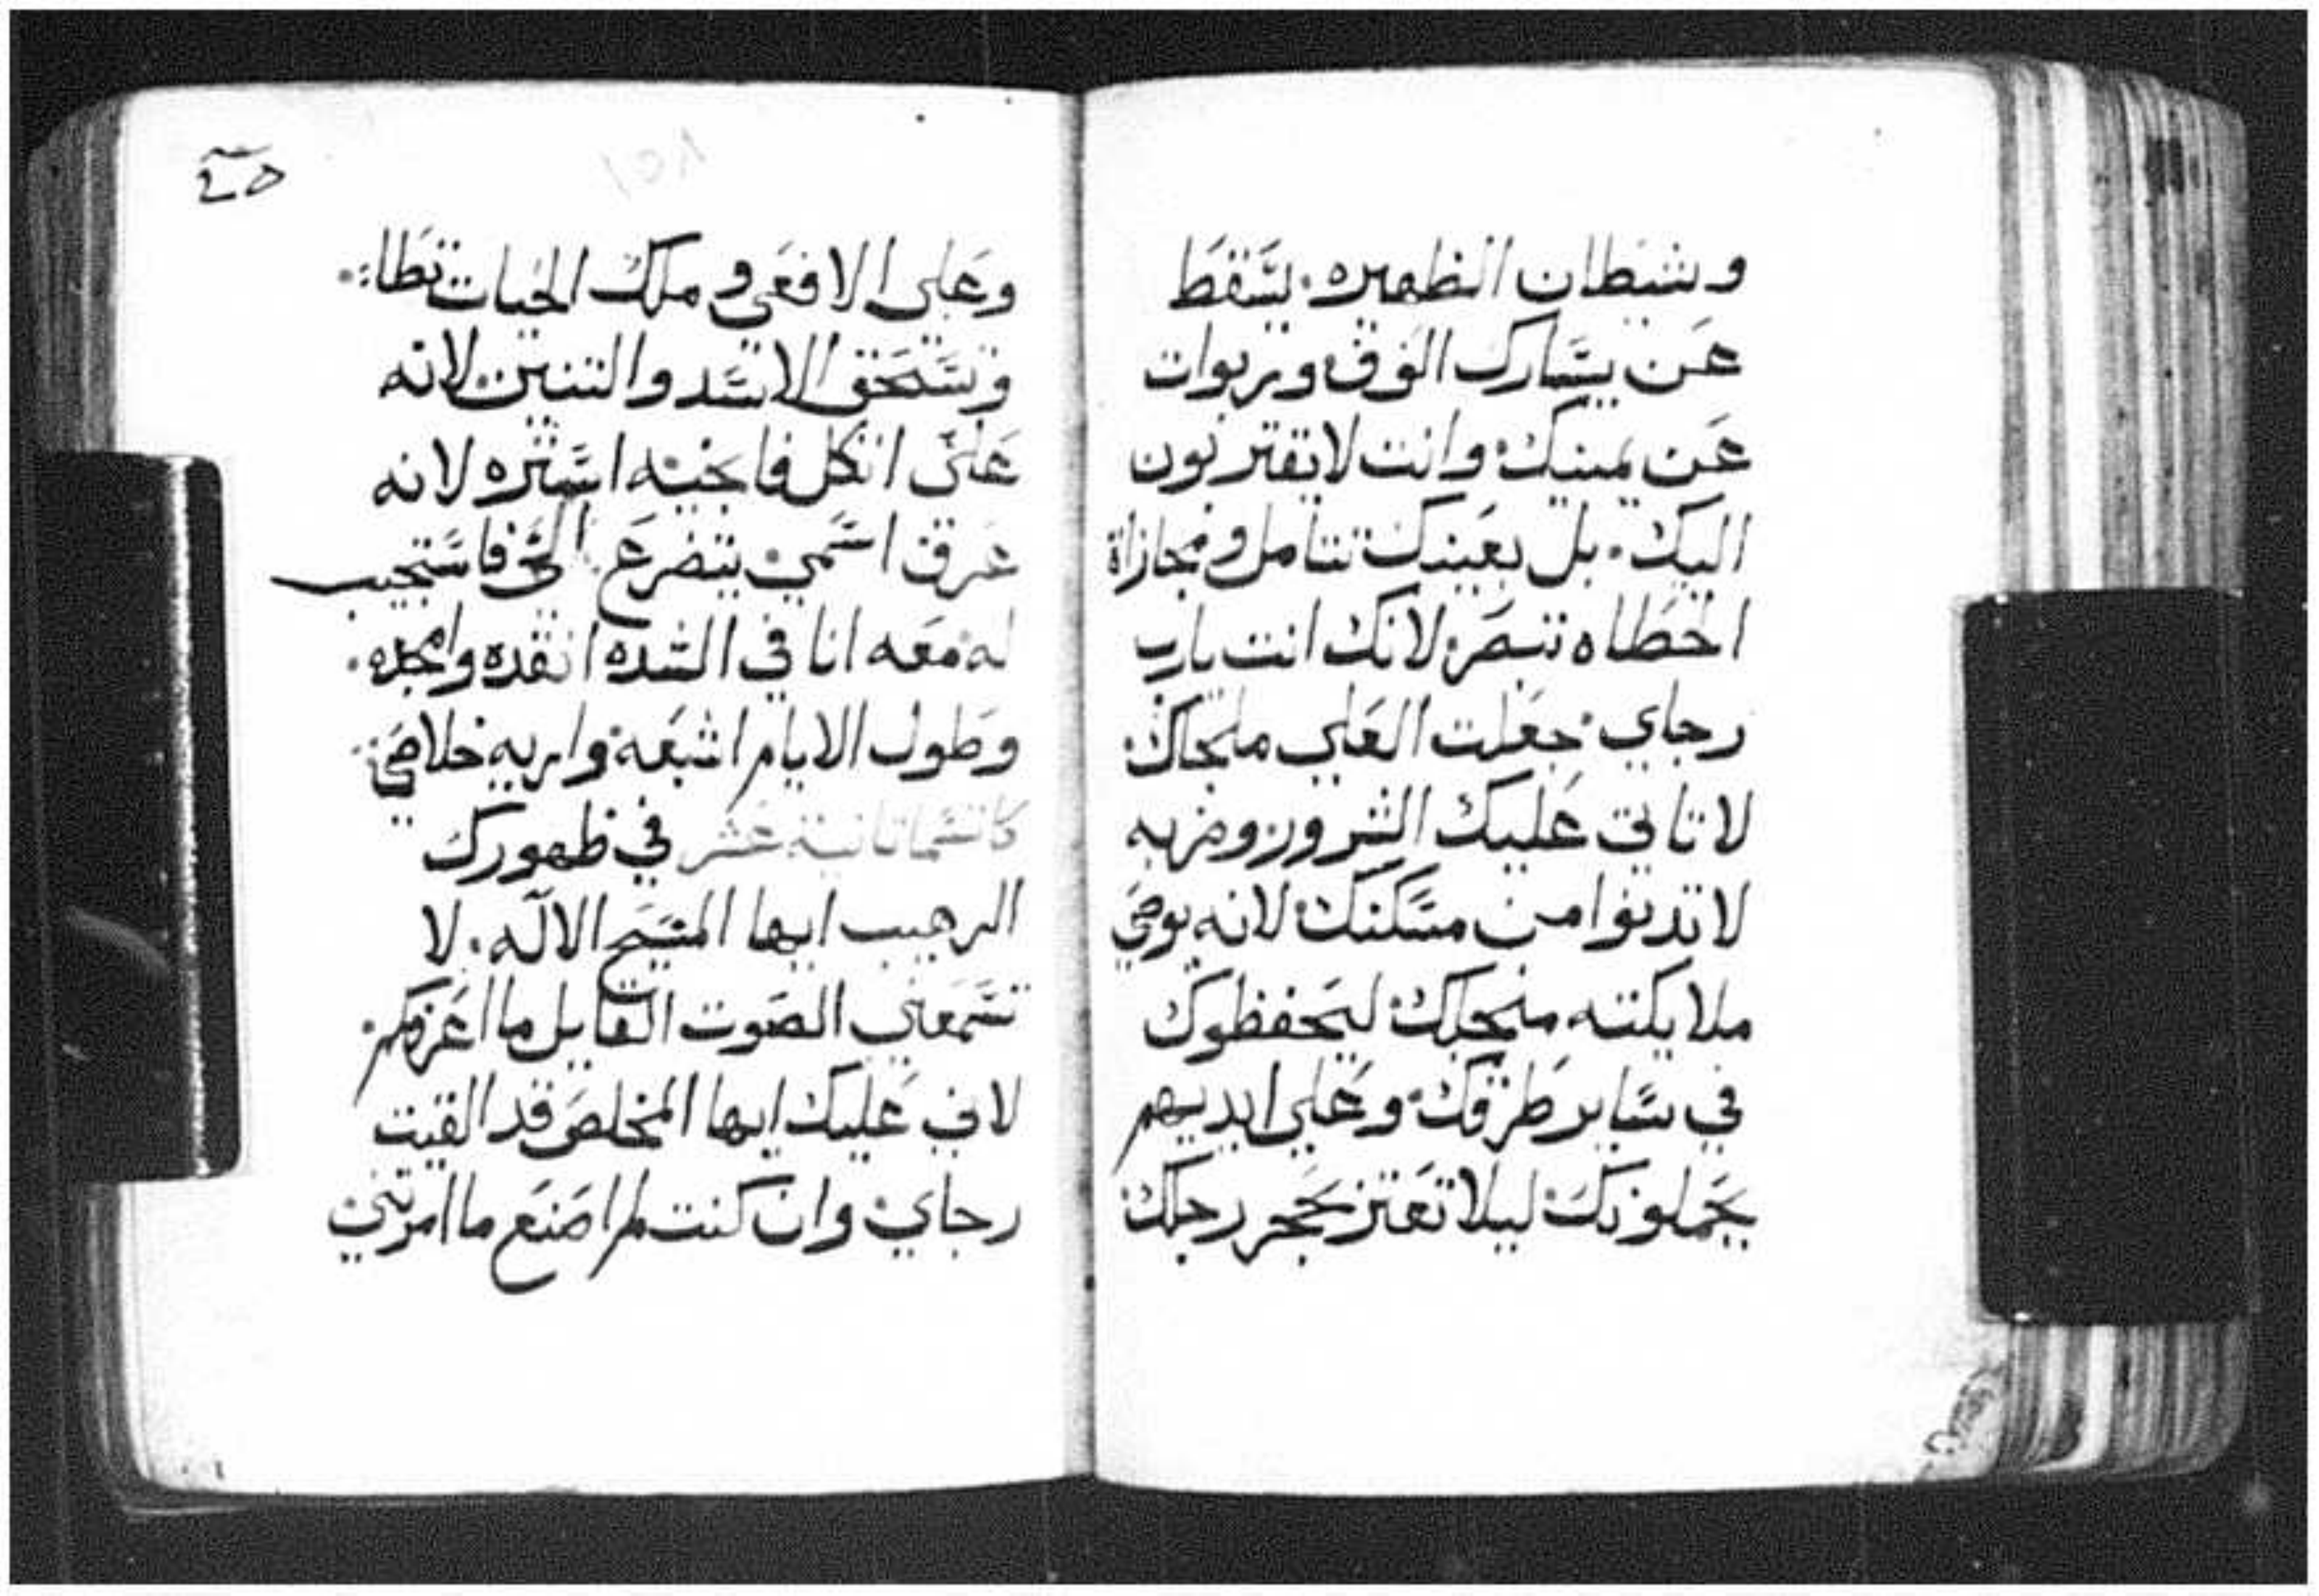 وشيطان الظهيره. يسقط
عن يسارك الوف وربوات
عن يمينك وانت لا يقتربون
اليك. بل بعينيك تتامل ومجازاة
الخطاه تبصر لانك انت يارب
رجاي جعلت العلي ملجاك
لا تاتي عليك الشرور وضربه
لا تدنوا من مسكنك لانه يوصي
ملايكته منجلك ليحفظوك
في ساير طرقك وعلي ايديهم
يحملونك ليلا تعتر بحجر رجلك
وعلى الافعي و ملك الحيات تطا
وتسحق الاسد والتنين لانه
علي اتكل فانجيه استره لانه
عرف اسمي يتضرع الي فاستجيب
له معه انا في الشده انقده وامجده.
وطول الايام اشبعه واريه خلاصي
كاتسما تانية عشر في ظهورك
الرهيب ايها المسيح الاله. لا
تسمعني الصوت القايل ما اعرفكم.
لاني عليك ايها المخلص قد القيت
رجاي وان كنت لم اصنع ما امرتني